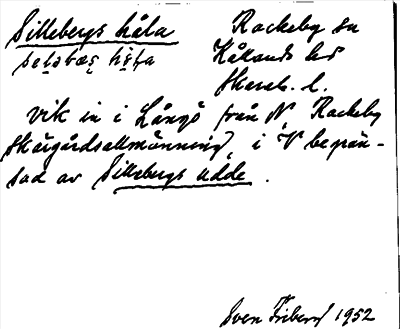 Sillebergs håla
Rackeby sn
Kållands hd
Skarab. l.
Vik in i Långö från N, Rackeby
skärgårdsallmänning, i V begrän-
sad av Sillebergs udde.
Sven Friberg 1952